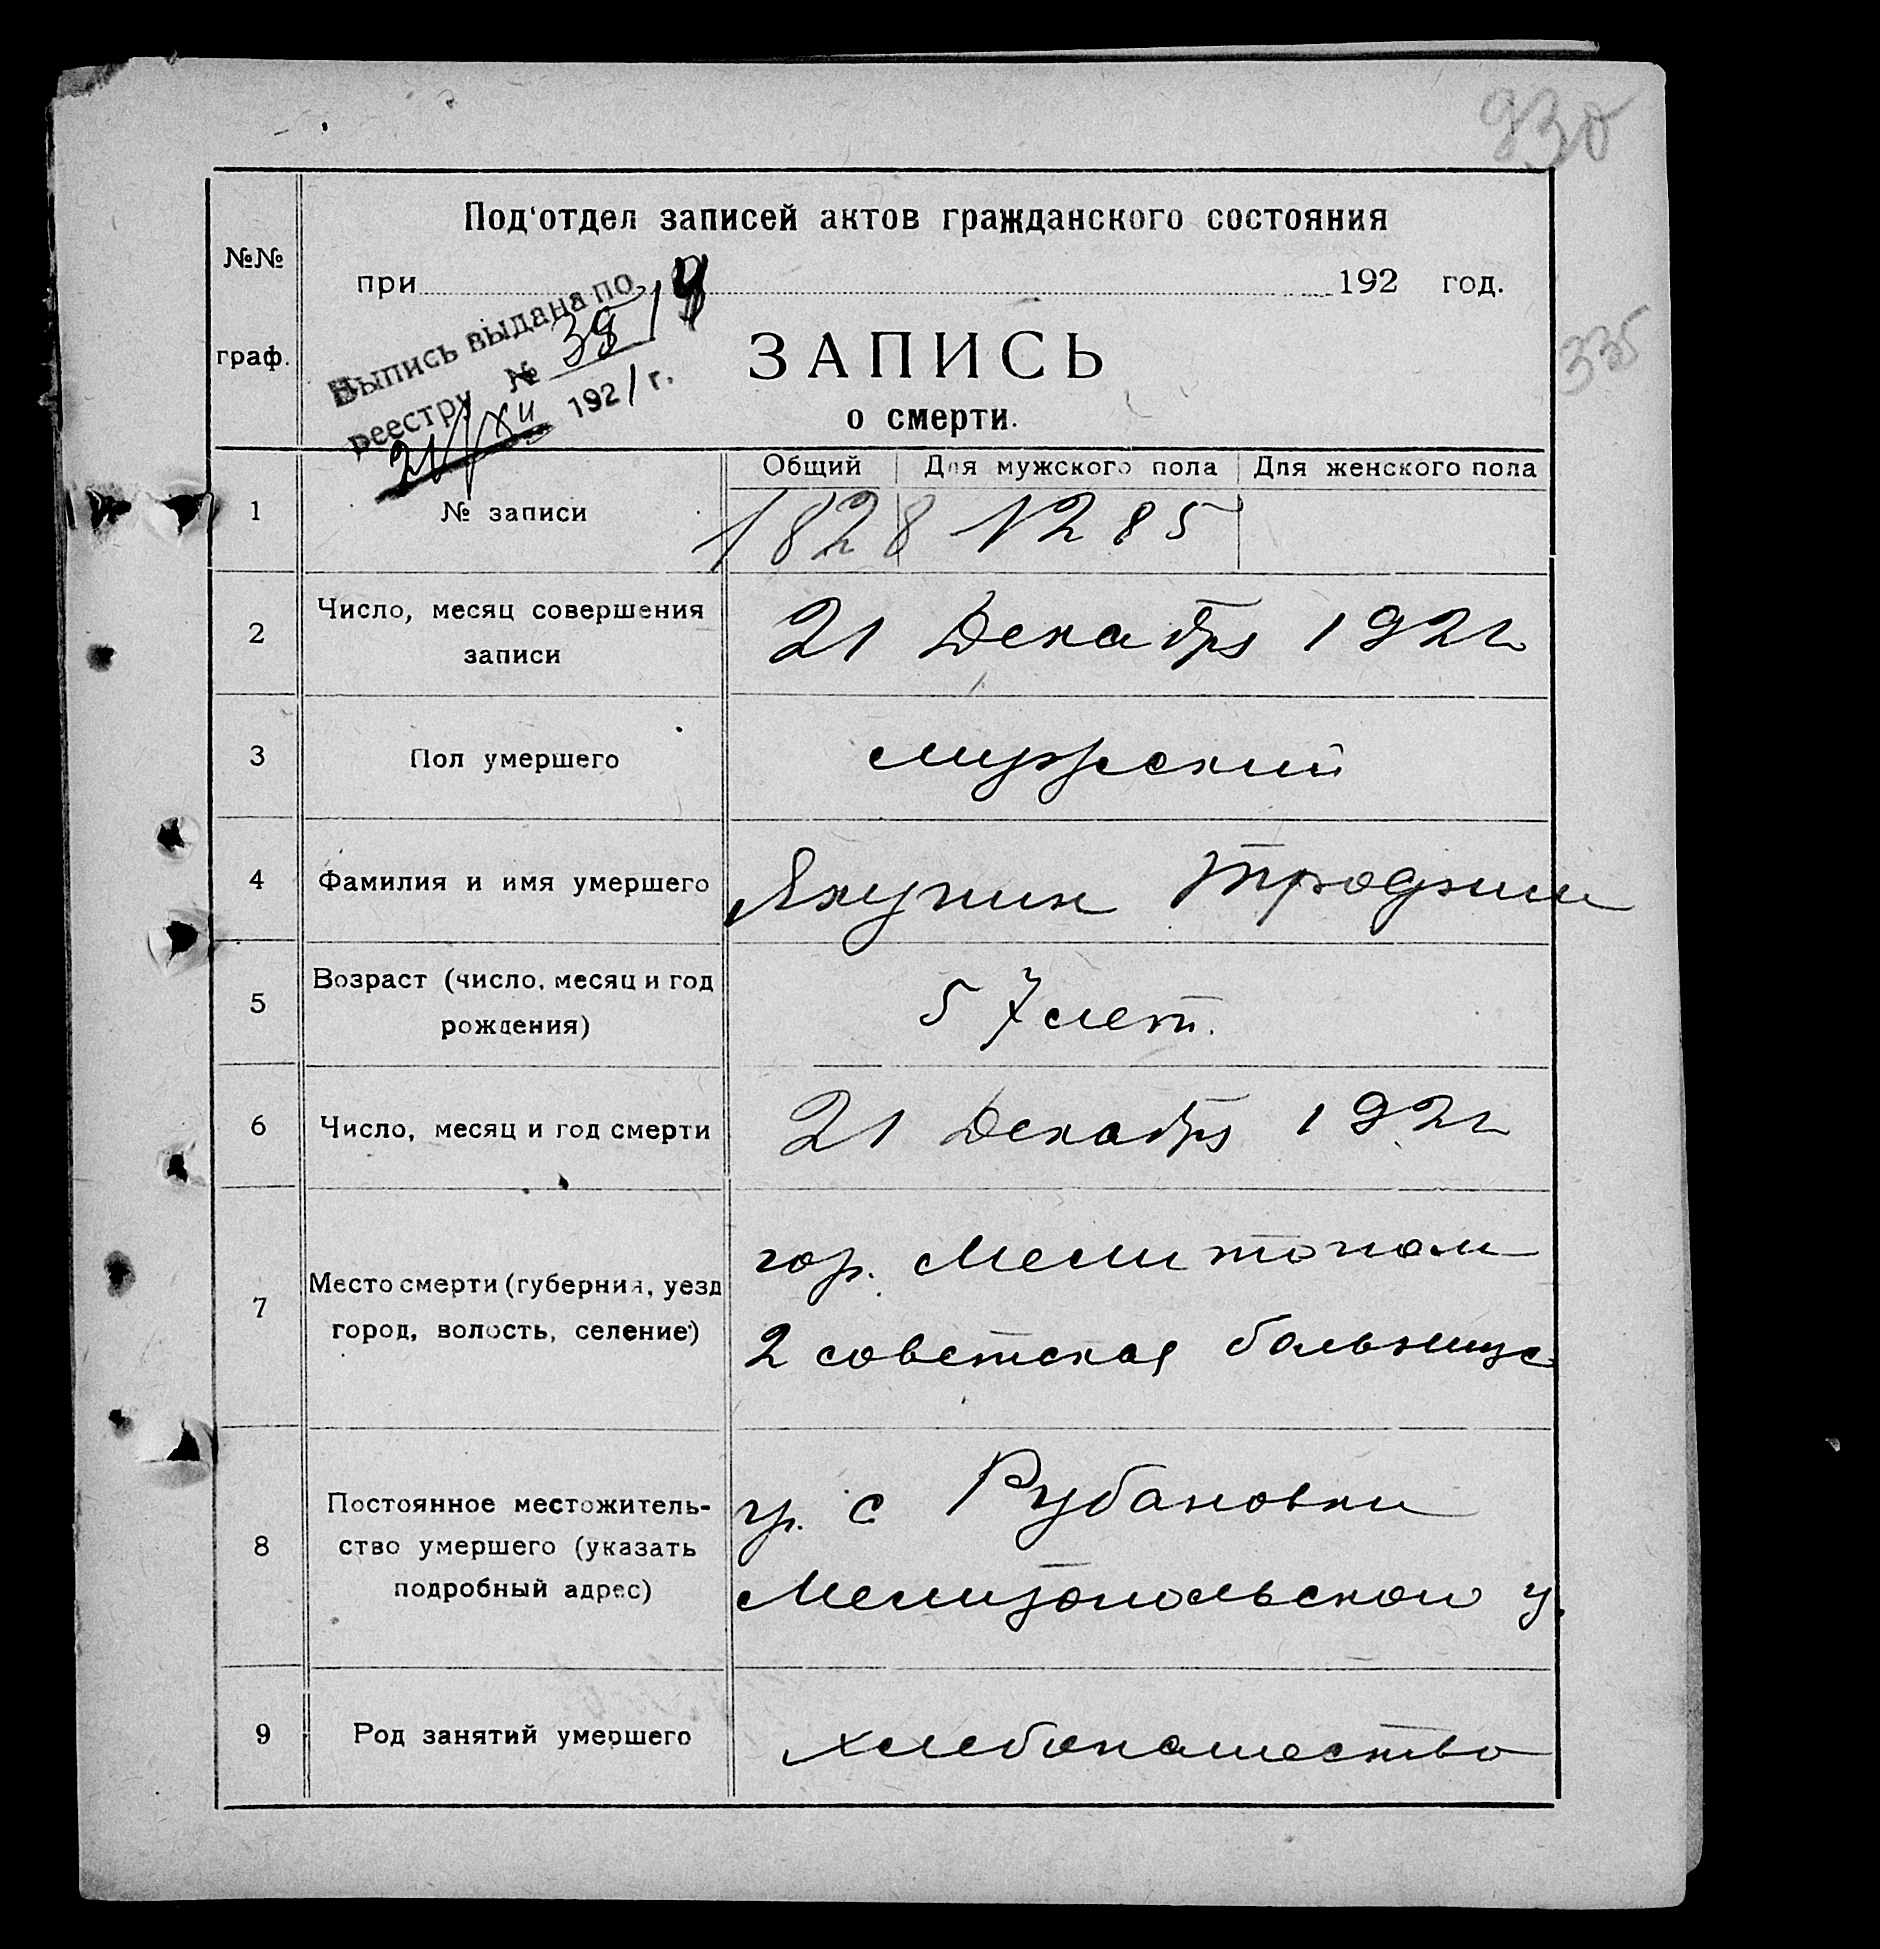 930
Под'отдел записей актов гражданского состояния
№№
при 192 год.
граф.
Выпись выдана по
реестру № 3819
21/XII 1921 г.
335
ЗАПИСЬ
о смерти.
Общий Для мужского пола Для женского пола
1 № записи 1828 1285
2 Число, месяц совершения
записи
21 Декабр 1921г
3 Пол умершего мужеский
4 Фамилия и имя умершего Якунин Трофим
5 Возраст (число, месяц и год
рождения)
57 лет.
6 Число, месяц и год смерти 21 Декабр 1921г
7 Место смерти (губерния, уезд
город, волость, селение)
гор. Мелитополь
2 советская больнице
8 Постоянное местожитель-
ство умершего (указать
подробный адрес)
гр. с Рубановки
Мелитопольского у.
9 Род занятий умершего хлебопашество